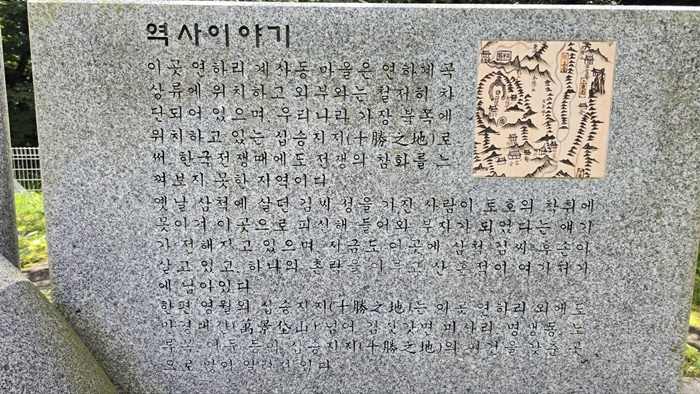 역사이야기
이곳 연하리 계사동 마을은 연하계곡
상류에 위치하고 외부와는 철저히 차
단되어 있으며 우리나라 가장 북쪽에
위치하고 있는 십승지지(十勝之地)로
써 한국전쟁때에도 전쟁의 참화를 느
껴보지 못한 지역이다
옛날 삼척에 살던 김씨 성을 가진 사람이 토호의 착취에
못이겨 이곳으로 피신해 들어와 부자가 되었다는 얘기
가 전해지고 있으며 지금도 이곳에 삼척 김씨 후손이
살고 있고 하나의 촌락을 이루고 산 흔적이 여기저기
에 남아있다
한편 영월의 십승지지(十勝之地)는 이곳 연하리 외에도
만경대산 넘어 미사리, 명생동, 노
루목 십승지지(十勝之地)의 여건을 갖춘 곳
으로 많이 알려져있다